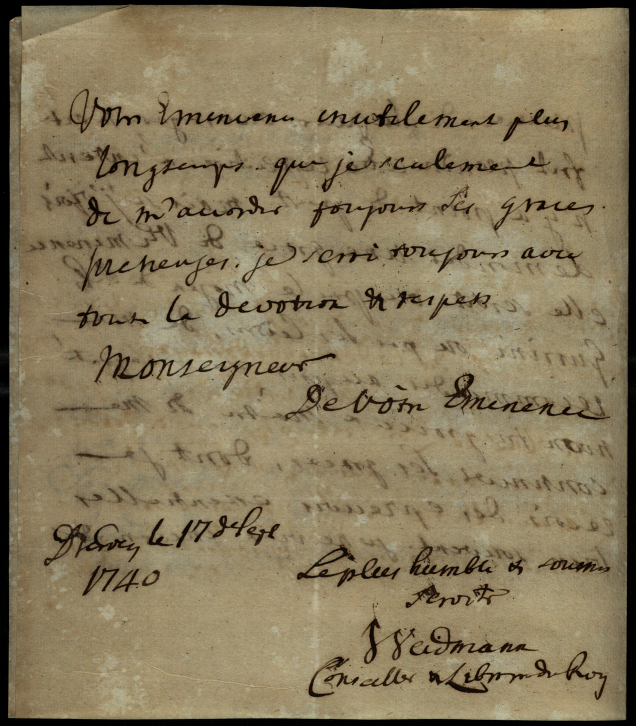 Votre Eminence inutilement plus
longtemps. que je seulement
de m'accorder toujours Ses graces
pretieuses. je serai toujours avec
toute la devotion & respect
Monseigneur
De Votre Eminence
le 17 de Sept
1740
Le plus humble & soumis
Servitr
Weidmann
Conseiller & du Roy